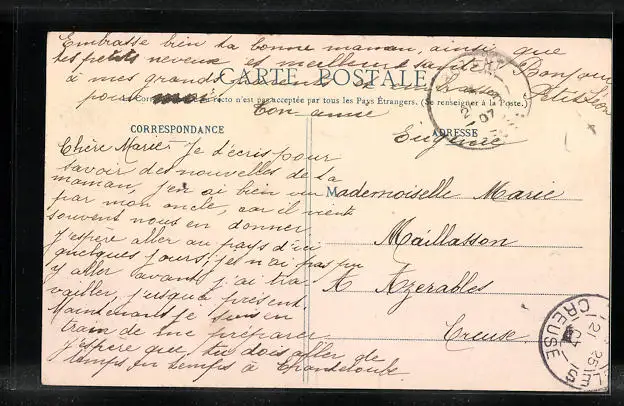 Embrasse bien ta bonne maman, ainsi que
tes petits neveux et meilleure santé Bonjour
à mes grands parents et embrasse Petit Léon
pour moi
Ton amie
Eugénie
CARTE POSTALE
recto n'est pas acceptée par tous les Pays Étrangers. (Se renseigner à la Poste.)
CORRESPONDANCE
ADRESSE
Chère Marie Je t'écris pour
savoir des nouvelles de ta
maman, j'en ai bien eu
par mon oncle, car il vient
souvent nous en donner.
J'espère aller au pays d'ici
quelques jours, je n'ai pas pu
y aller avant j'ai tra-
vailler, jusqu'à présent.
Maintenant je suis en
train de me préparer.
J'espère que tu dois aller de
temps en temps à Chanteloube
Mademoiselle Marie
Maillasson
A Azerables
Creuse
07
CREUSE